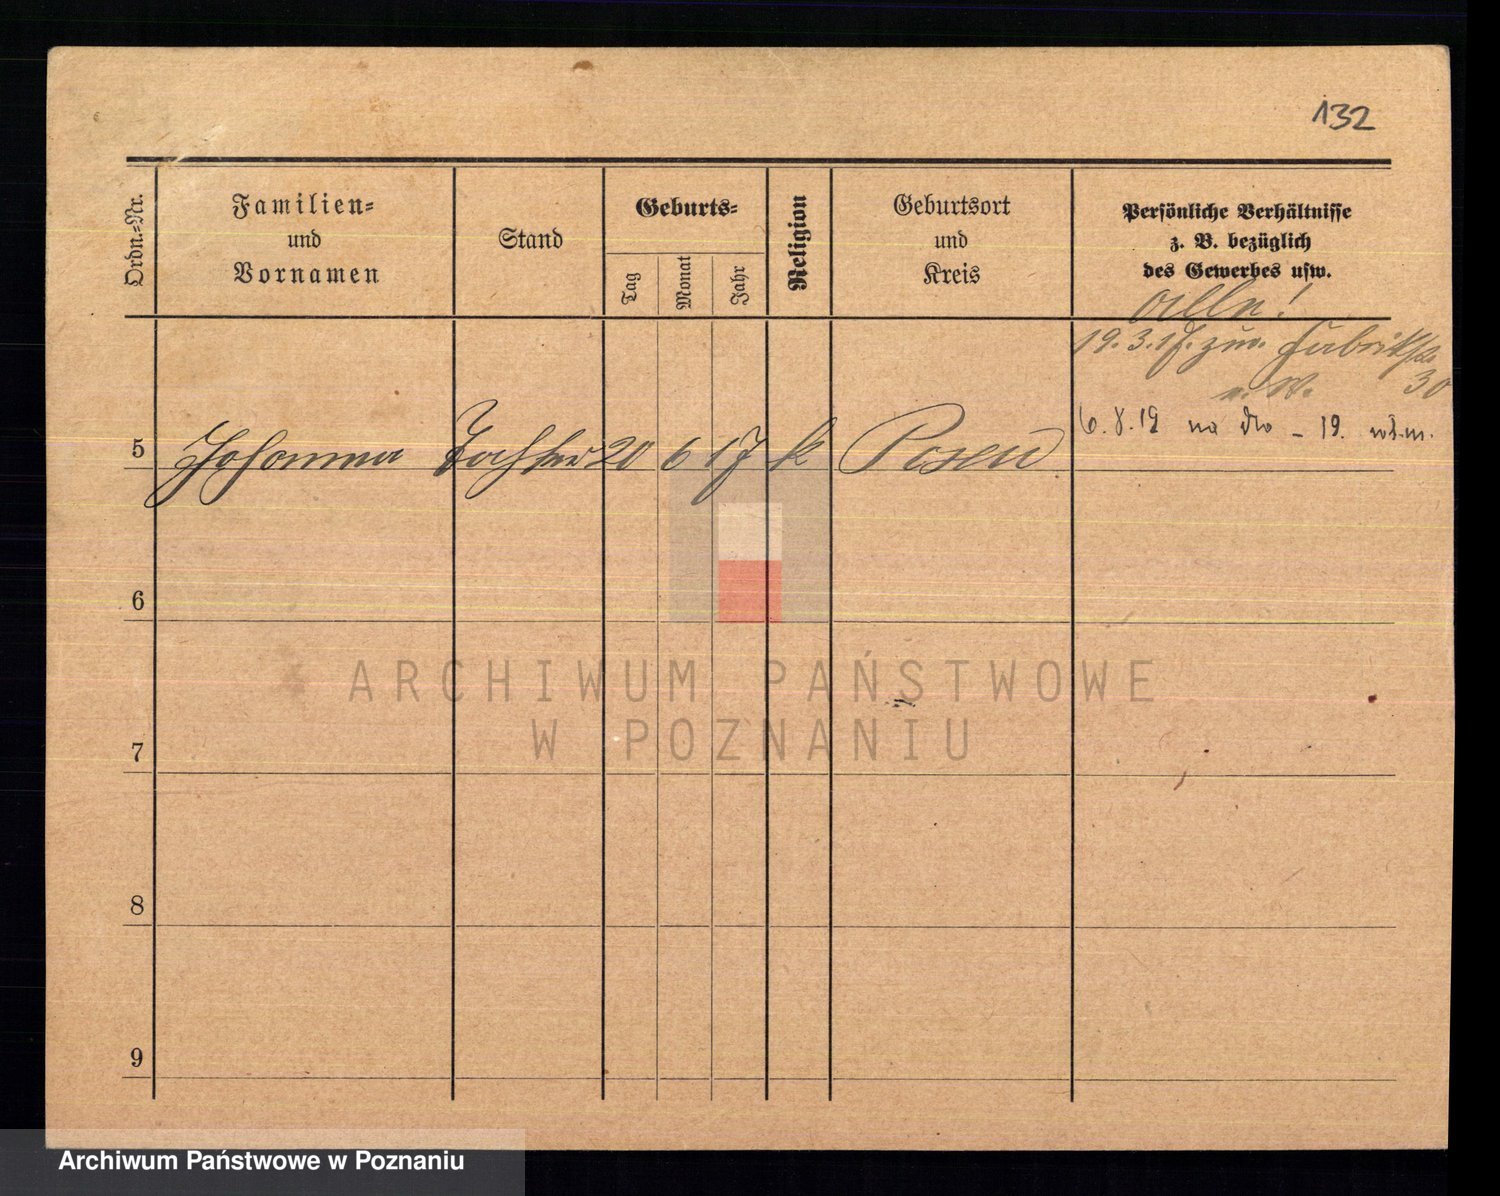 132
Ordn.-Nr.
Familien-
und
Vornamen
Stand
Geburts-
Tag
Monat
Jahr
Religion
Geburtsort
und
Kreis
Persönliche Verhältnisse
z. B. bezüglich
des Gewerbes usw.
alle!
19. 3. 17. zur. Fabrikstr.
30
6. 8. 19 na dto - 19.
5 Johanna Tochter 20 6 17 k Posen
6
7
8
9
ARCHIWUM PAŃSTWOWE
W POZNANIU
Archiwum Państwowe w Poznaniu